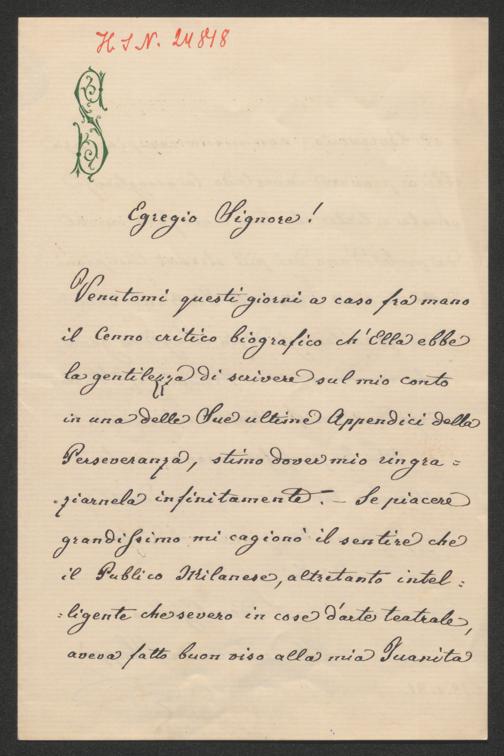 H.I.N. 24818
S
Egregio Signore!
Venutomi questi giorni a caso fra mano
il Cenno critico biografico ch'Ella ebbe
la gentilezza di scrivere sul mio conto
in una delle Sue ultime Appendici della
Perseveranza, stimo dover mio ringra=
ziarnela infinitamente. – Se piacere
grandissimo mi cagionò il sentire che
il Publico Milanese, altretanto intel=
=ligente che severo in cose d'arte teatrale,
aveva fatto buon viso alla mia Juanita